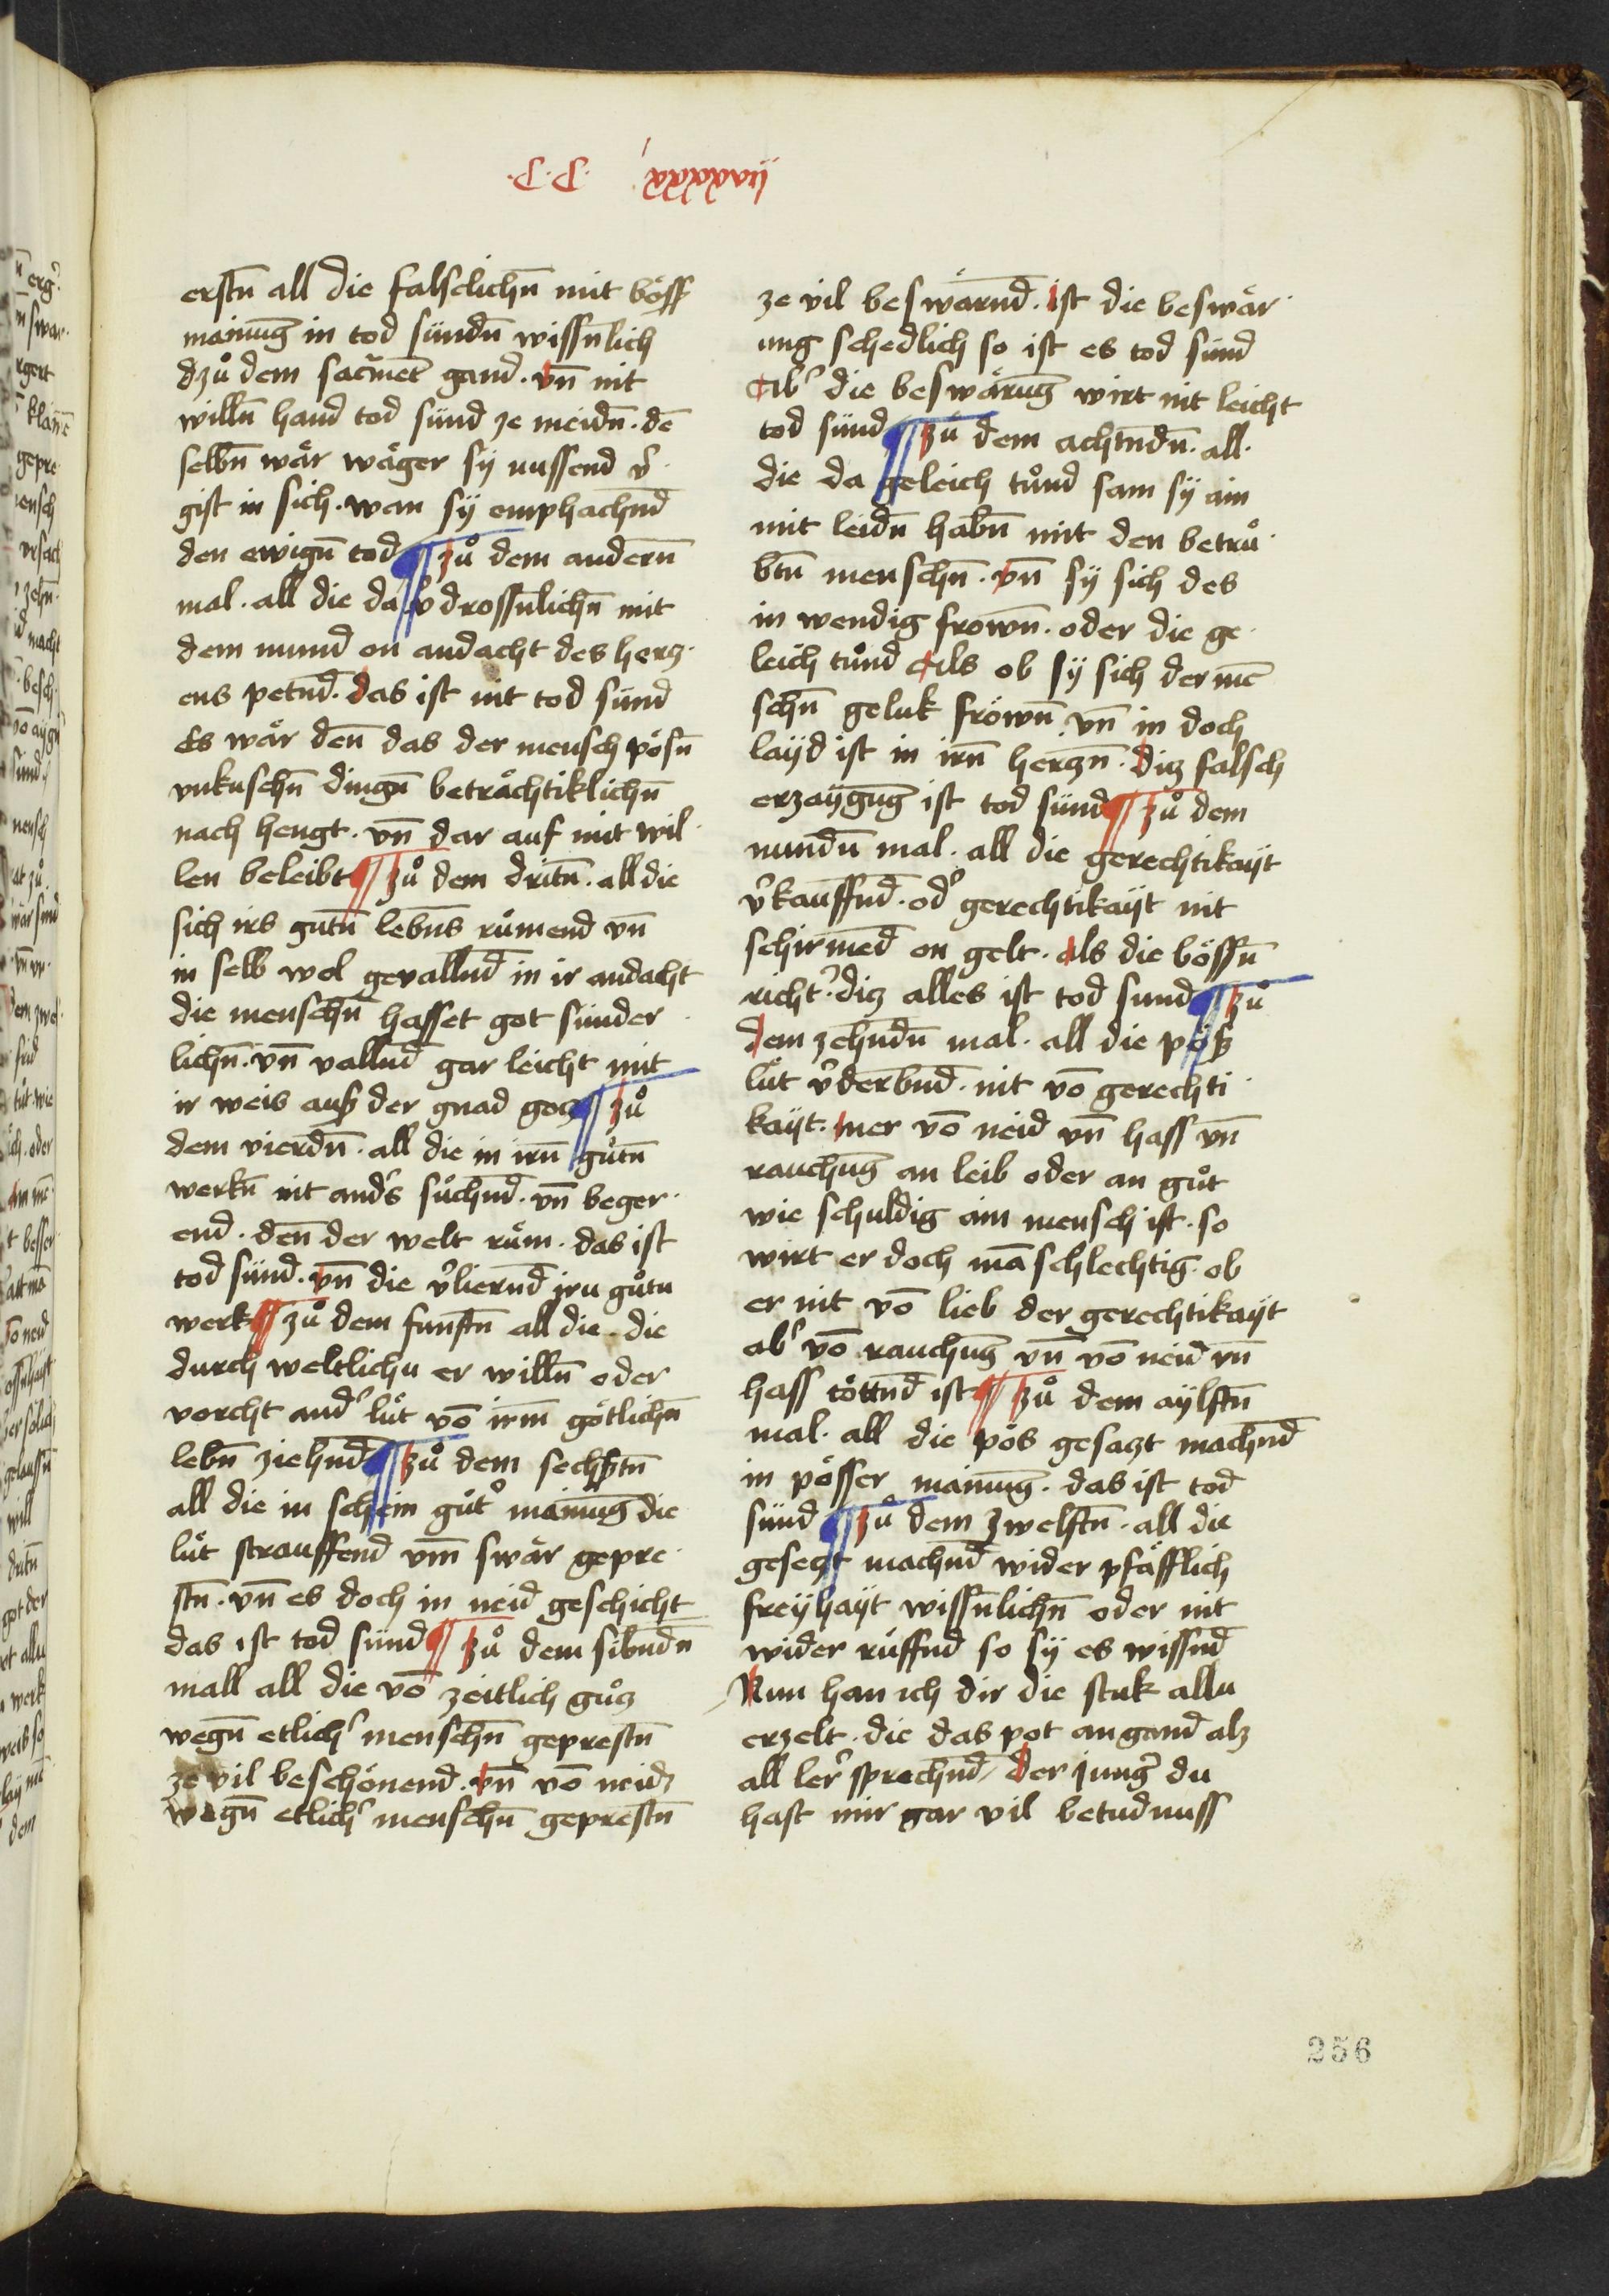 .C.C. lxxxxxij
erstn̄ all die falschlichn̄ mit böss
mainu̅g in tod sündn̄ wissn̄lich
dzů dem sacrame̅t gand. vn̄ nit
willn̄ hand tod sünd ze meidn̄. de̅
selbn̄ wär wäger sÿ nussend v̓
gift in sich. wan sÿ emphachn̄d
den ewign̄ tod ¶ Zů dem andern̄
mal. all die da v̓drossn̄lichn̄ mit
dem mund on andacht des hercz
ens petn̄d. das ist nit tod sünd
Es wär den̄ das der mensch pösn̄
vnkuschn̄ dingn̄ beträchtiklichn̄
nach hengt. vn̄ dar auf mit wil
len beleibt ¶ Zů dem dritn̄. all die
sich irs gutn̄ lebn̄s rümend vn̄
in selb wol gevalln̄d in ir andacht
die menschn̄ hasset got sünder
lichn̄. vn̄ valln̄d gar leicht mit
ir weis auß der gnad gocz ¶ Zů
dem vierdn̄. all die in irn̄ gůtn̄
werkn̄ nit and̓s sůchn̄d. vn̄ beger
end. den̄ der welt rům. das ist
tod sünd. vn̄ die v̓liern̄d irn gůtn
werk ¶ Zů dem funftn̄ all die. die
durch weltlichn er willn̄ oder
vorcht and̓ lüt vo̅ irm̄ götlichn̄
lebn̄ ziehn̄d ¶ Zů dem sechstn̄
all die in schein gůt̓ mainu̅g die
lüt strauffend vm̄ swär gepre
stn̄. vn̄ es doch in neid geschicht
das ist tod sünd ¶ Zů dem sibn̄dn̄
mall all die vo̅ zeitlich gůcz
wegn̄ etlich̓ menschn̄ geprestn̄
ze vil beschönend. vn̄ vo̅ neidz
wegn̄ etlich̓ menschn̄ geprestn̄
ze vil beswärn̄d. ist die beswär
ung schedlich so ist es tod sünd
Ab̓ die beswäru̅g wirt nit leicht
tod sünd ¶ Zů dem achtn̄dn̄. all
die da geleich tůnd sam sÿ ain
mit leidn̄ habn̄ mit den betrů
btn̄ menschn̄. vn̄ sÿ sich des
in wendig frown̄. oder die ge
leich tůnd Als ob sÿ sich der me̅
schn̄ geluk fröwn̄ vn̄ in doch
laÿd ist in irn̄ herczn̄. dicz falsch
erzaÿgu̅g ist tod sünd ¶ Zů dem
nu̅ndn̄ mal. all die gerechtikaÿt
v̓kauffn̄d. od̓ gerechtikaÿt nit
schirme̅d on gelt. Als die bössn̄
richt̓. dicz alles ist tod sund ¶ Zů
dem zehn̄dn̄ mal. all die pöß
lüt v̓derbn̄d. nit vo̅ gerechti
kaÿt. mer vo̅ neid vn̄ hass vn̄
rauchu̅g an leib oder an gůt
wie schuldig ain mensch ist. so
wirt er doch ma̅schlechtig. ob
er nit vo̅ lieb der gerechtikaÿt
ab̓ vo̅ rauchu̅g vn̄ vo̅ neid vn̄
hass töttn̄d ist ¶ Zů dem aÿlftn̄
mal. all die pös gesaczt machn̄d
in pösser mainu̅g. das ist tod
sünd ¶ Zů dem Zwelftn̄. all die
geseczt machn̄d wider pfäfflich
freÿhaÿt wissn̄lichn̄ oder nit
wider rüffn̄d so sÿ es wissn̄d
Nun han ich dir die stuk alln
erzelt. die das pot an gand alz
all ler̓ sprechn̄d. der jung̓ du
hast mir gar vil betudnuss
256